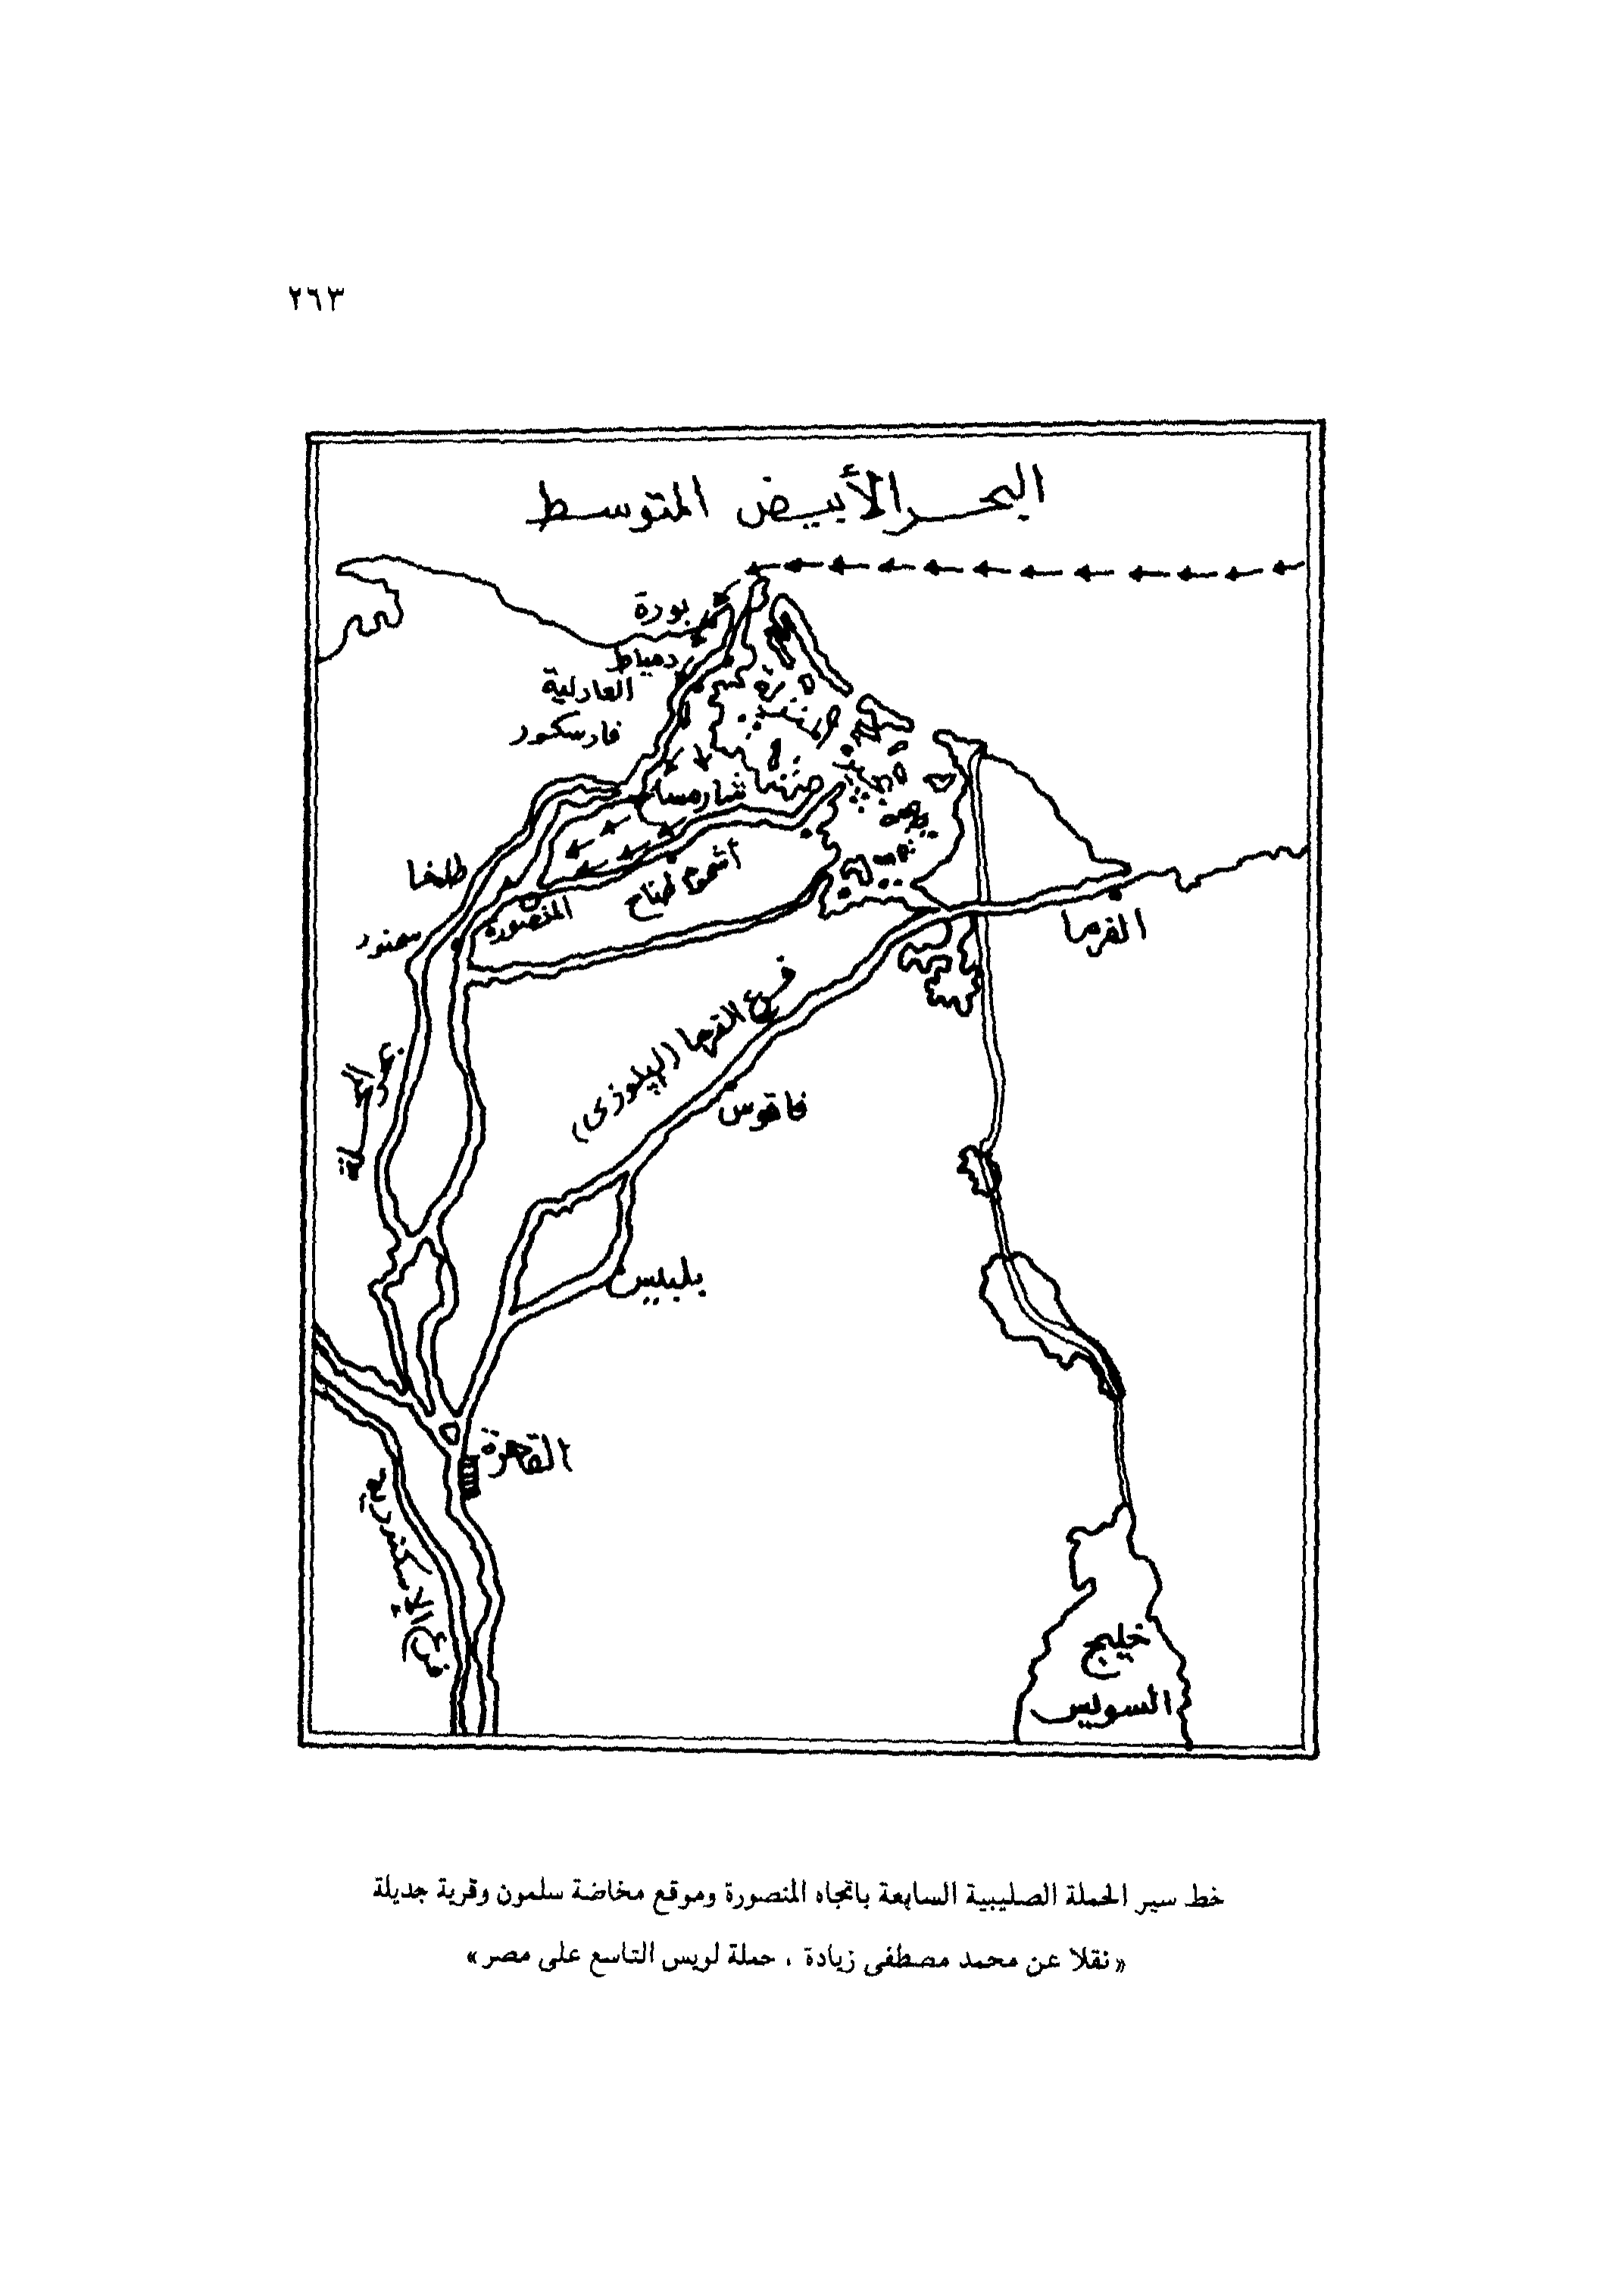 ٢٦٣
البحر الأبيض المتوسط
بورة
دمياط
العادلية
فارسكور
شارمساح
طلخا
أشموم طناح
المنصورة
سمنود
الفرما
فرع الفرما (البيلوزى)
فاقوس
بلبيس
القاهرة
خليج
السويس
خط سير الحملة الصليبية السابعة باتجاه المنصورة وموقع مخاضة سلمون وقرية جديلة
«نقلا عن محمد مصطفى زيادة ، حملة لويس التاسع على مصر»